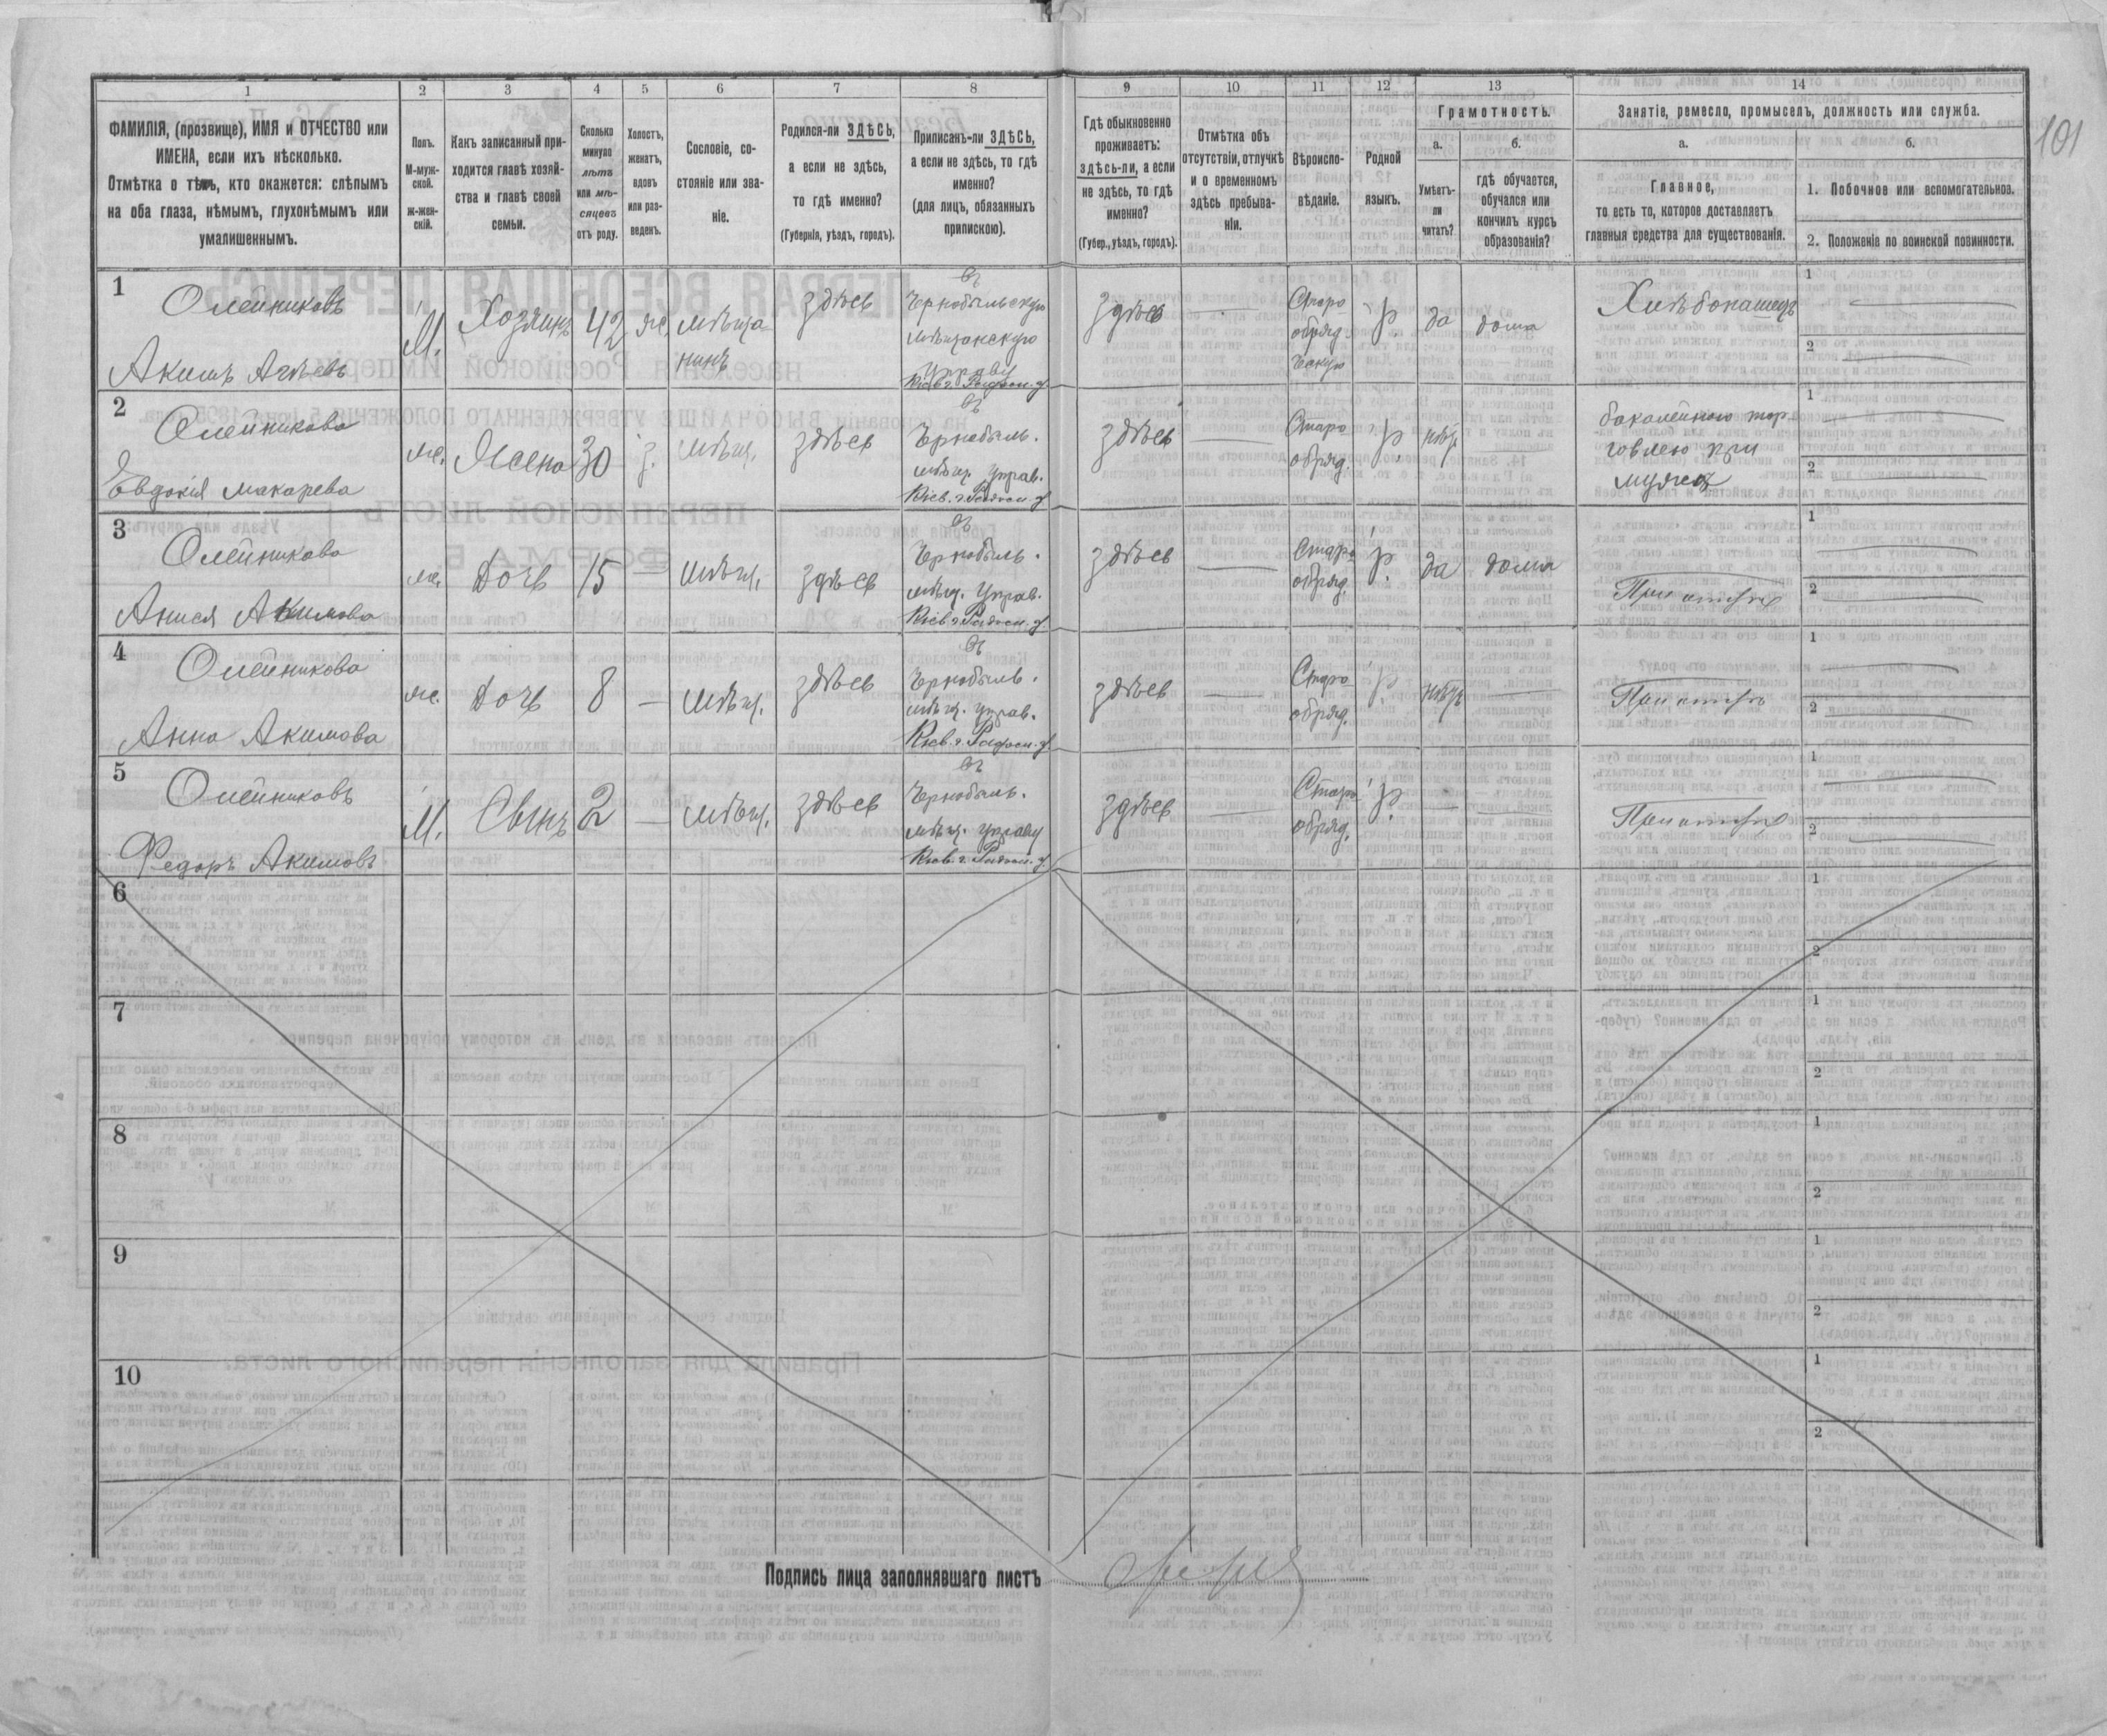 101
1 2 3 4 5 6 7 8 9 10 11 12 13 14
ФАМИЛІЯ, (прозвище), ИМЯ и ОТЧЕСТВО или
ИМЕНА, если ихъ нѣсколько.
Отмѣтка о тѣхъ, кто окажется: слѣпымъ
на оба глаза, нѣмымъ, глухонѣмымъ или
умалишеннымъ.
Полъ.
М-муж-
ской.
Ж-жен-
скій.
Какъ записанный при-
ходится главѣ хозяй-
ства и главѣ своей
семьи.
Сколько
минуло
лѣтъ
или мѣ-
сяцевъ
отъ роду.
Холостъ,
женатъ,
вдовъ
или раз-
веденъ.
Сословіе, со-
стояніе или зва-
ніе.
Родился-ли ЗДѢСЬ,
а если не здѣсь,
то гдѣ именно?
(Губернія, уѣздъ, городъ).
Приписанъ-ли ЗДѢСЬ,
а если не здѣсь, то гдѣ
именно?
(для лицъ, обязанныхъ
припискою).
Гдѣ обыкновенно
проживаетъ:
здѣсь-ли, а если
не здѣсь, то гдѣ
именно?
(Губер., уѣздъ, городъ).
Отмѣтка объ
отсутствіи, отлучкѣ
и о временномъ
здѣсь пребыва-
ніи.
Вѣроиспо-
вѣданіе.
Родной
языкъ.
Грамотность.
а.
Умѣетъ-
ли
читать?
б.
гдѣ обучается,
обучался или
кончилъ курсъ
образованія?
Занятіе, ремесло, промыселъ, должность или служба.
а.
Главное,
то есть то, которое доставляетъ
главныя средства для существованія.
б.
1. Побочное или вспомогательное.
2. Положеніе по воинской повинности.
1
Олейниковъ
Акимъ
М.
Хозяинъ
42
же.
мѣща
нинъ
здѣсь
въ
Чернобыльскую
мѣщанскую
управу
Кіев. г. Радом. у
здѣсь
Старо
обряд.
р.
да
дома
Хлѣбопашецъ
1
2
2
Олейникова
Евдокія Макарева
же.
Жена
30
з.
мѣщ.
здѣсь
въ
Чернобыль.
мѣщ. управ.
Кіев. г. Радом. у
здѣсь
Старо
обряд.
р.
нѣтъ
бакалейною тор
говлею при
мужѣ
1
2
3
Олейникова
Анися Акимова
же.
Дочь
15
мѣщ.
здѣсь
въ
Чернобыль.
мѣщ. Управ.
Кіев. г. Радом. у
здѣсь
Старо
обряд.
р.
да
дома
При отцѣ
1
2
4
Олейникова
Анна Акимова
же.
Дочь
8
мѣщ.
здѣсь
въ
Чернобыль.
мѣщ. управ.
Кіев. г. Радом. у
здѣсь
Старо
обряд.
р.
нѣтъ
При отцѣ
1
2
5
Олейниковъ
Федоръ Акимовъ
М.
Сынъ
2
мѣщ.
здѣсь
въ
Чернобыль.
мѣщ. управу
Кіев. г. Радом. у
здѣсь
Старо
обряд.
р.
При отцѣ
1
2
6
1
2
7
1
2
8
1
2
9
1
2
10
1
2
Подпись лица заполнявшаго листъ